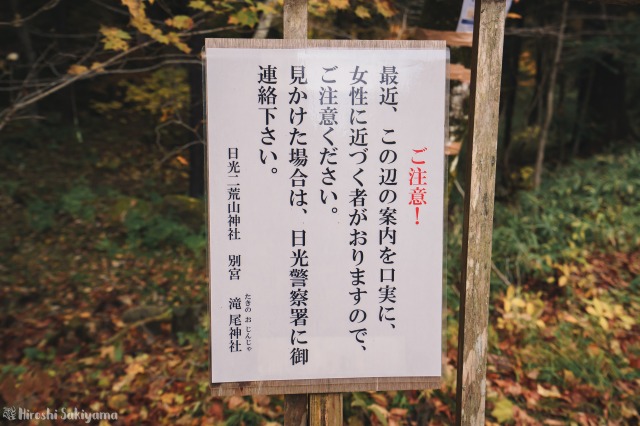 ご注意！
最近、この辺の案内を口実に、
女性に近づく者がおりますので、
ご注意ください。
見かけた場合は、日光警察署に御
連絡下さい。
日光二荒山神社　別宮　滝尾神社
たきのおじんじゃ
Hiroshi Sakiyama